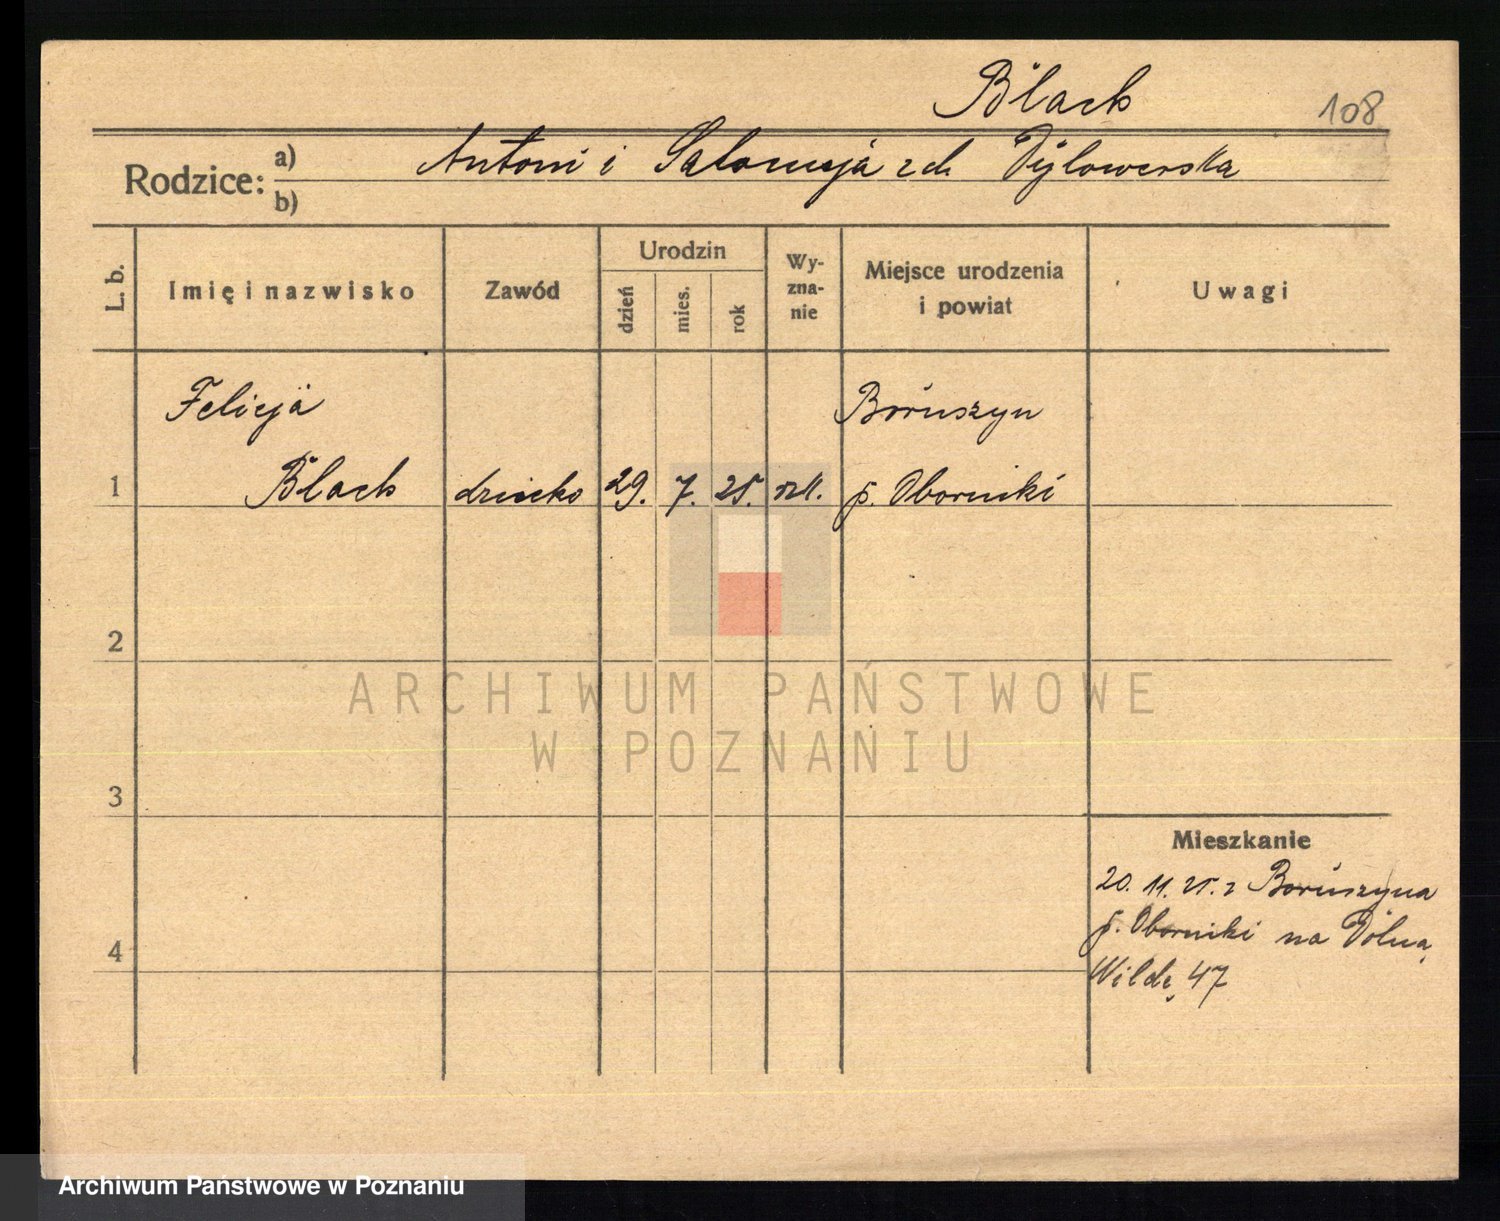 Black
108
Rodzice:
a)
b)
Antoni i Salomeja z d.
L. b.
Imię i nazwisko
Zawód
Urodzin
dzień
mies.
rok
Wy-
zna-
nie
Miejsce urodzenia
i powiat
Uwagi
Felicja
Boruszyn
1
Black
dziecko
29.
7.
25.
rzk.
p. Oborniki
2
ARCHIWUM PAŃSTWOWE
W POZNANIU
3
Mieszkanie
20. 11. 25. z Boruszyna
p. Oborniki na Dolną
4
Wildę 47
Archiwum Państwowe w Poznaniu